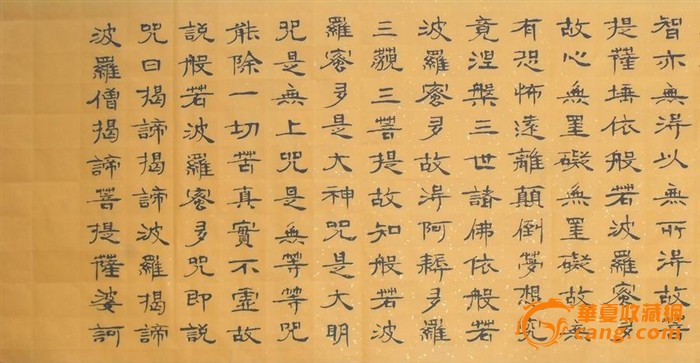 智亦無淂以無所淂故菩
提薩埵依般若波羅蜜多
故心無罣礙無罣礙故無
有恐怖遠離顛倒夢想究
竟涅槃三世諸佛依般若
波羅蜜多故淂阿耨多羅
三藐三菩提故知般若波
羅蜜多是大神咒是大明
咒是無上咒是無等等咒
能除一切苦真實不虛故
說般若波羅蜜多咒即說
咒曰揭諦揭諦波羅揭諦
波羅僧揭諦菩提薩婆訶
華夏收藏網
cang.com